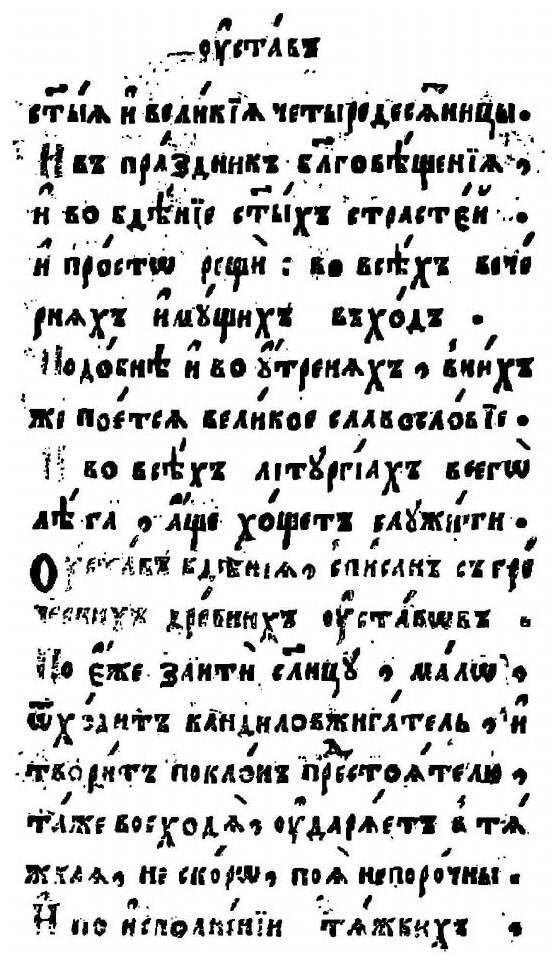 ᲂу҆ста́въ
ст҃ы́ѧ и҆ вели́кїѧ четыредесѧ́тницы.
И҆ въ пра́здникъ бл҃говѣ́щенїѧ,
и҆ во бдѣ́нїе ст҃ы́хъ страсте́й .
и҆ про́стѡ рещѝ : во всѣ́хъ вече́
рнѧхъ и҆мꙋ́щихъ вхо́дъ .
Подо́бнѣ и҆ во ᲂу҆́тренѧхъ, в̾ни́хъ
же пое́тсѧ вели́кое славосло́вїе.
И҆ во всѣ́хъ літꙋргі́ахъ всегѡ̀
лѣ́та , а҆́ще хо́щетъ слꙋжи́ти .
Оу҆ста́въ бдѣ́нїѧ, спи́санъ съ гре́
ческихъ дре́внихъ ᲂу҆ста́вѡвъ .
По є҆́же заитѝ сл҃нцꙋ̀ , ма́лѡ ,
ѿхо́дитъ кандиловжига́тель, и҆
твори́тъ покло́нъ предстоѧ́телю,
та́же восходѧ̀, ᲂу҆дарѧ́етъ в тѧ́
жкаѧ, не ско́рѡ, поѧ̀ непоро́чны .
И҆ по и҆сполне́нїи тѧ́жкихъ ,